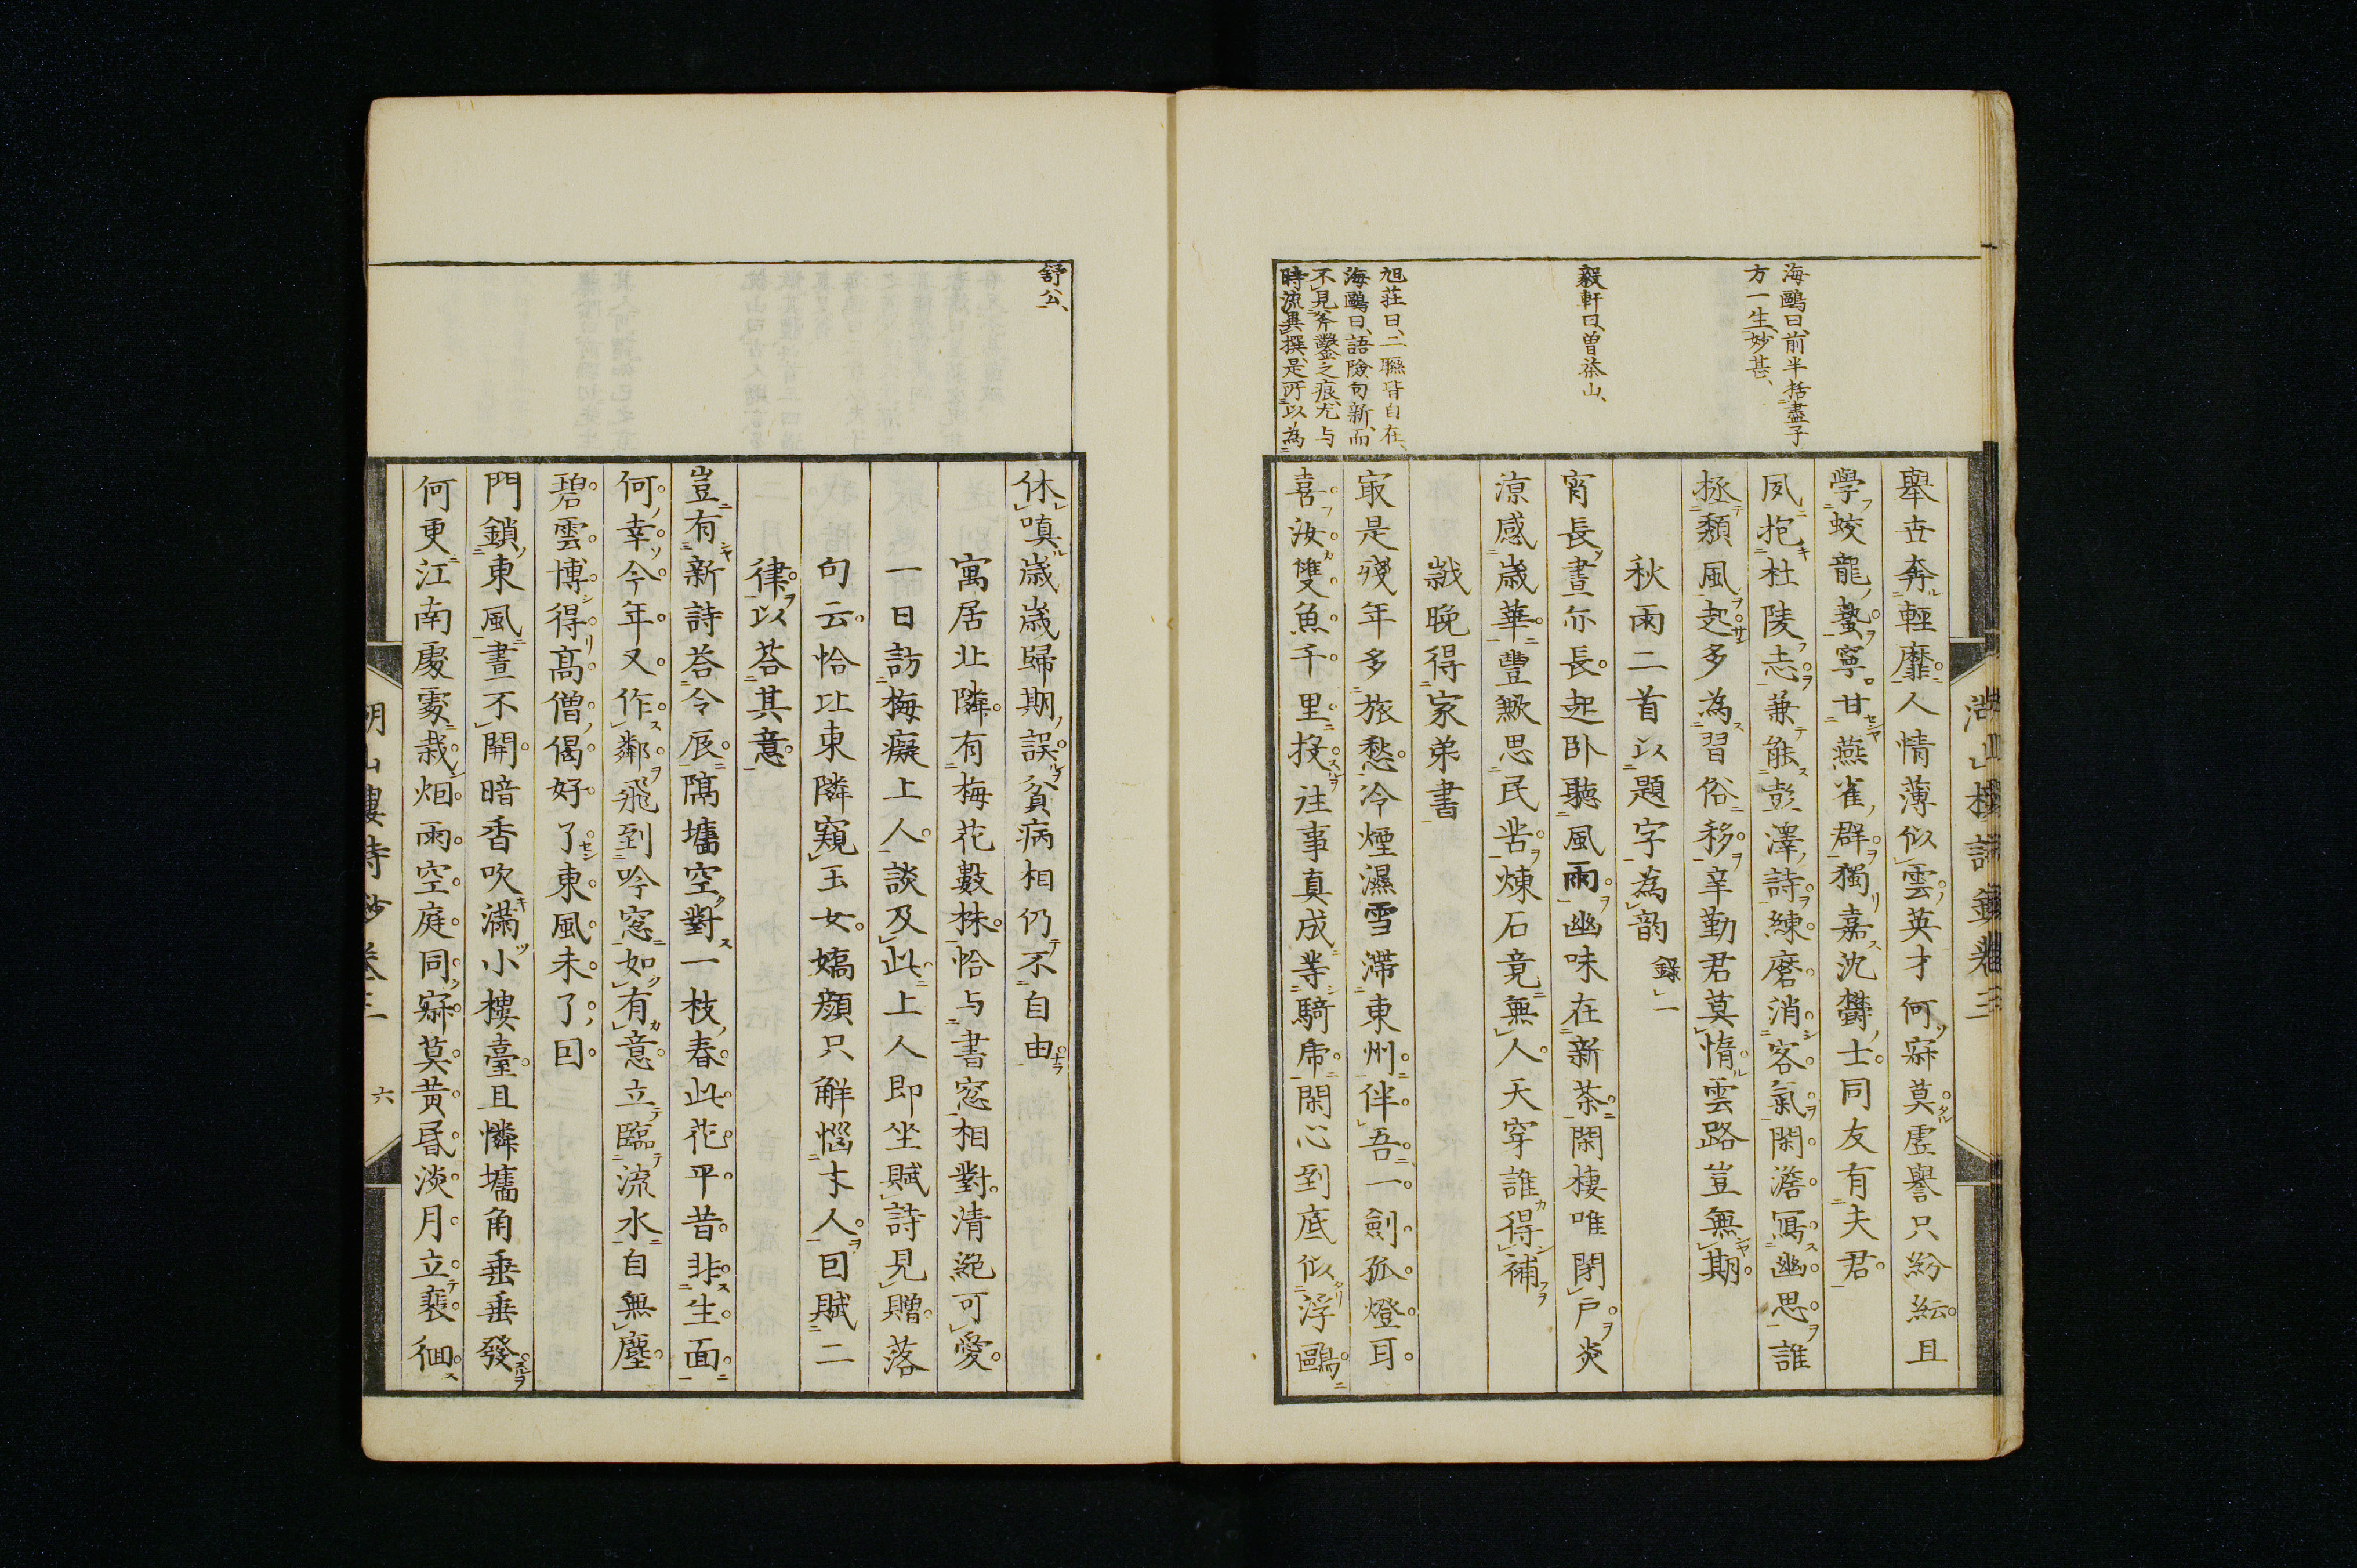 海鷗曰、前半括盡子
方一生、妙甚、
毅軒曰、曽茶山、
旭荘曰、二聯皆自在、
海鷗曰、語險句新、而
不見斧鑿之痕、尤与
時流異撰、是所以為
舉世奔輕靡人情薄似雲英才何寂莫虚譽只紛紜且
學蛟龍蟄寧甘燕雀群獨嘉沈欝士同友有夫君
夙抱杜陵志兼能彭澤詩練磨消客氣閑澹冩幽思誰
拯頽風起多為習俗移辛勤君莫惰雲路豈無期
秋雨二首以題字為韵 錄一
宵長晝亦長起卧聽風雨幽味在新茶閑棲唯閉戸炎
凉感歳華豊歉思民苦煉石竟無人天穿誰得補
歳晚得家弟書
寂是殘年多旅愁冷煙濕雪滞東州伴吾一劍孤燈耳
喜汝雙魚千里投往事真成等騎乕閑心到底似浮鷗
湖山樓詩鈔卷三
舒公、
休嗔歳歳歸期誤貧病相仍不自由
寓居北隣有梅花數株恰与書窓相對清絶可愛
一日訪梅癡上人談及此上人即坐賦詩見贈落
句云恰比東隣窺玉女嬌顔只解惱才人囙賦二
律以荅其意
豈有新詩荅令辰隔墻空對一枝春此花平昔非生面
何幸今年又作鄰飛到吟窓如有意立臨流水自無塵
碧雲博得髙僧偈好了東風未了囙
門鎖東風晝不開暗香吹滿小樓臺且憐墻角垂垂發
何更江南處處栽烟雨空庭同寂莫黄昬淡月立裵徊
湖山樓詩鈔卷三 六